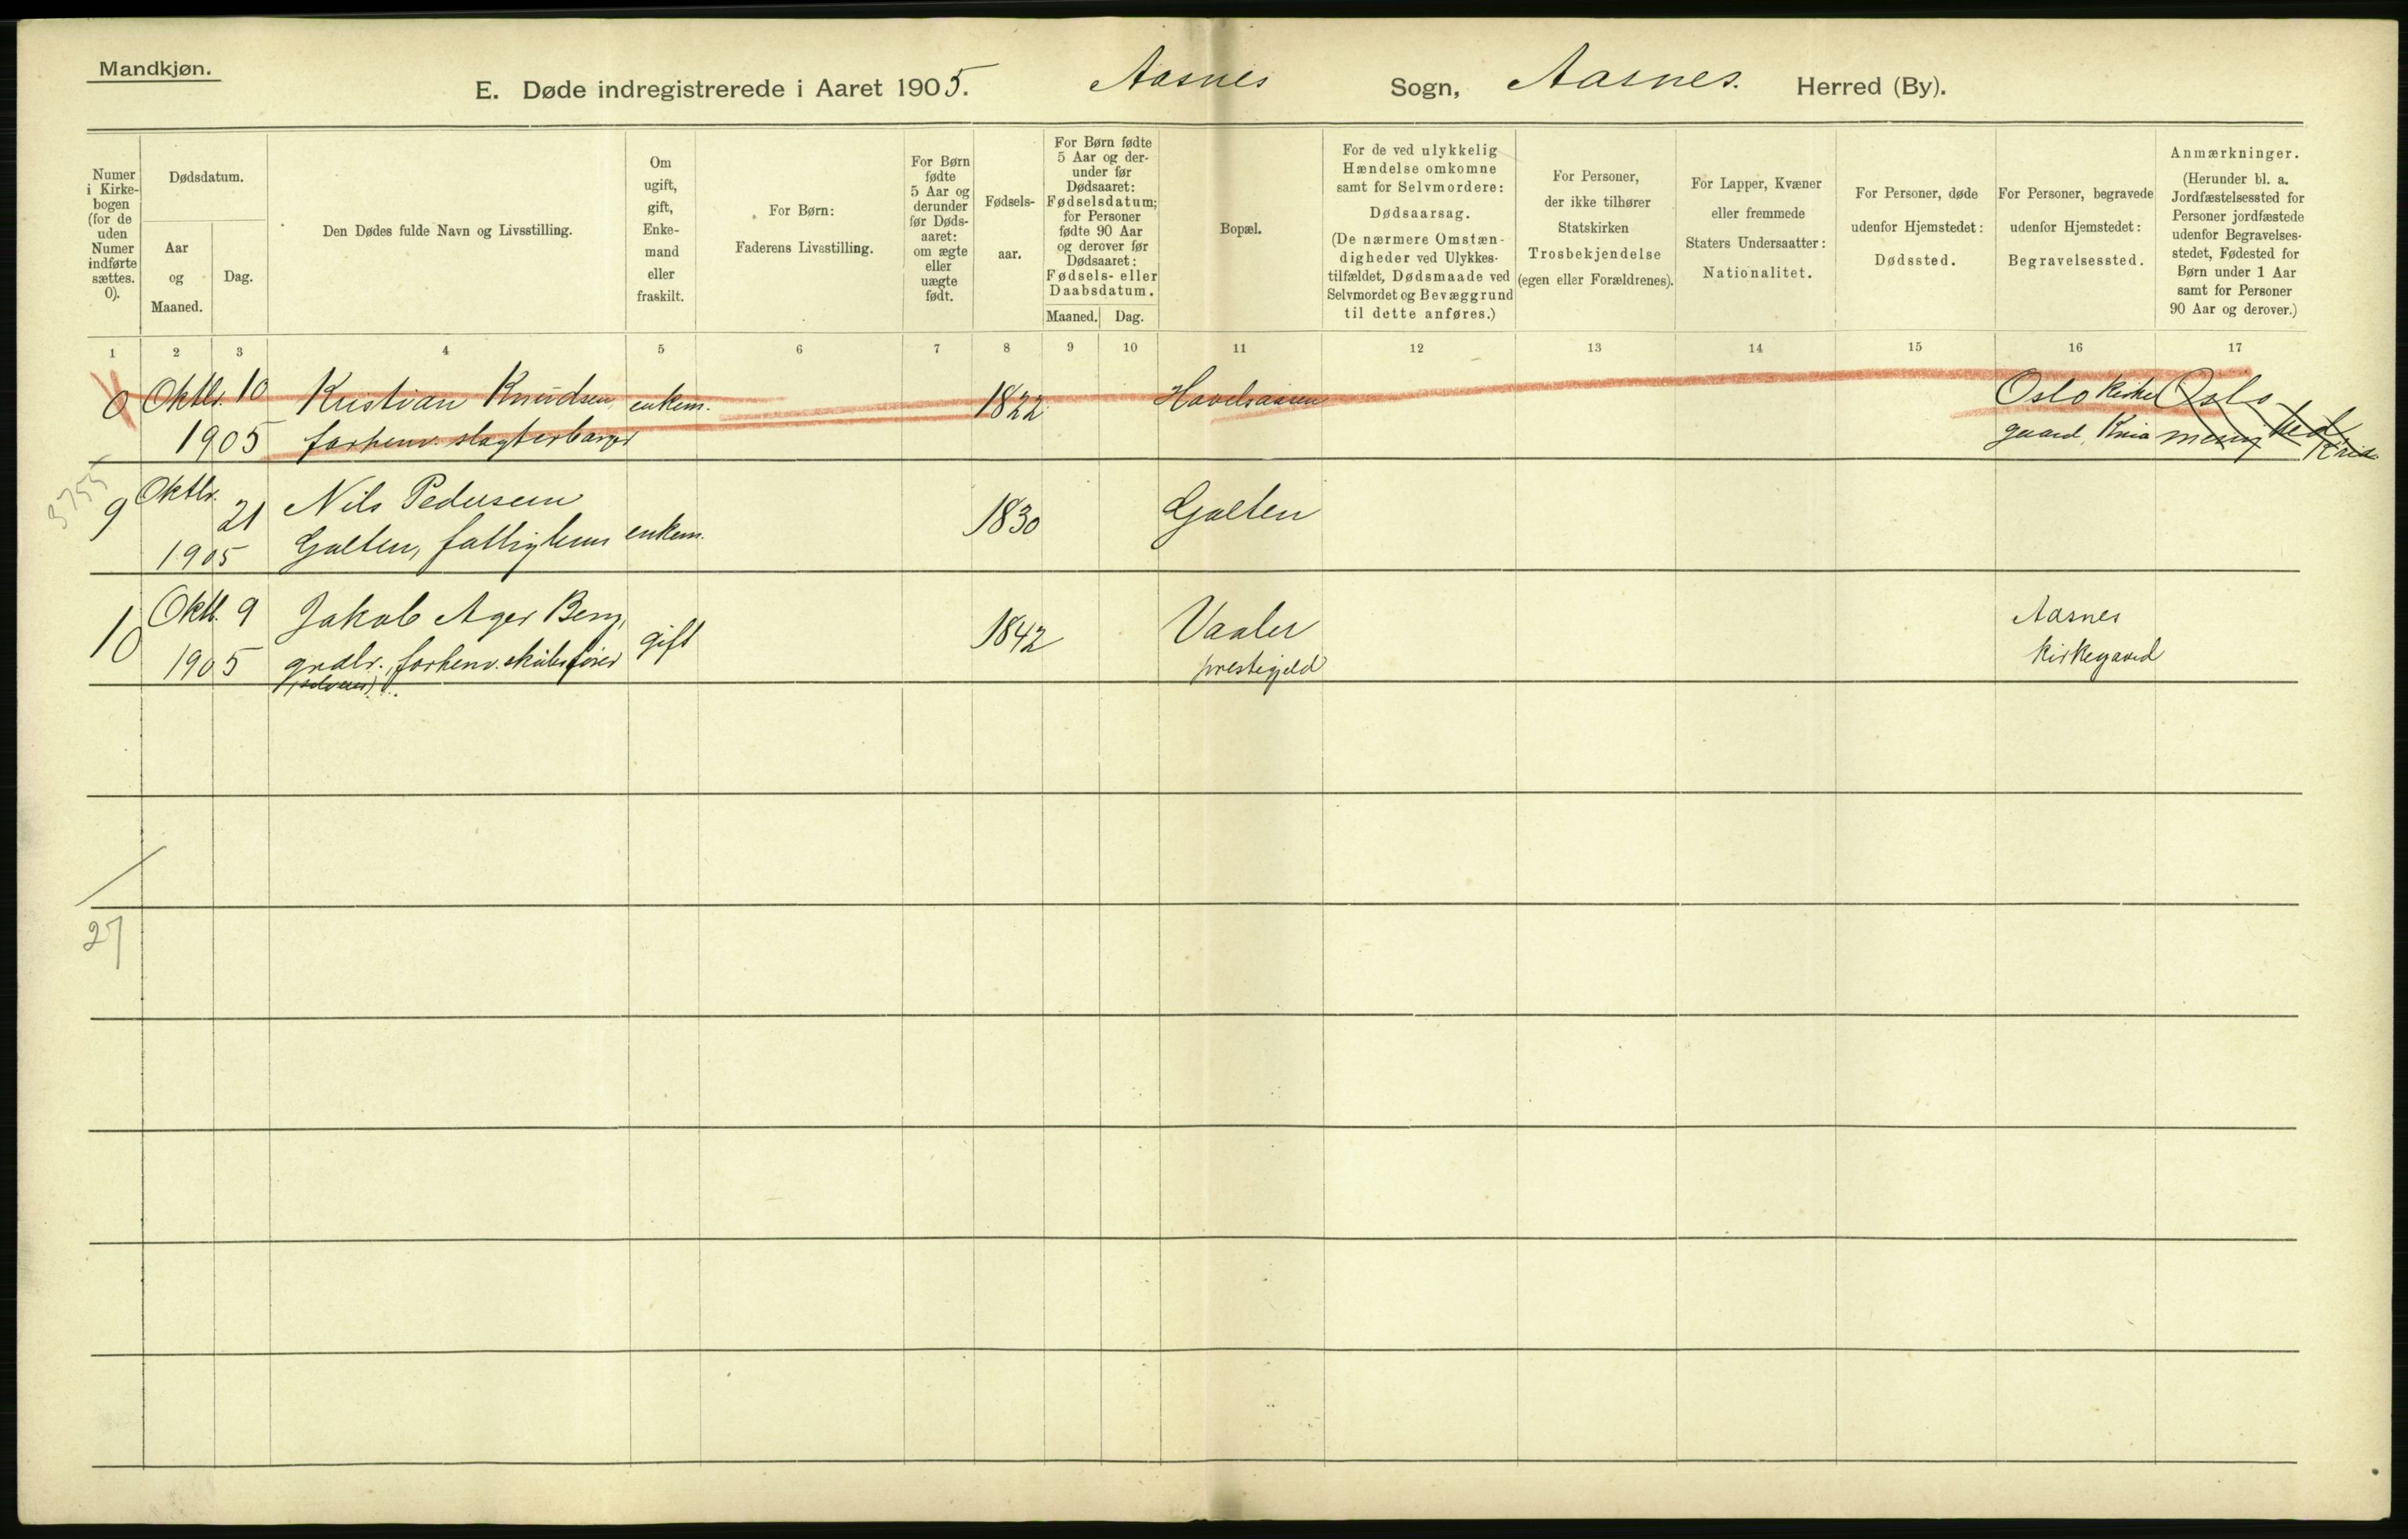 Mandkjøn.
E. Døde indregistrerede i Aaret 1905. Aasnes Sogn, Aasnes. Herred (By).
Numer
i Kirke-
bogen
(for de
uden
Numer
indførte
sættes.
0).
Dødsdatum.
Aar
og
Maaned.
Dag.
Den Dødes fulde Navn og Livsstilling.
Om
ugift,
gift,
Enke-
mand
eller
fraskilt.
For Børn:
Faderens Livsstilling.
For Børn
fødte
5 Aar og
derunder
før Døds-
aaret:
om ægte
eller
uægte
født.
Fødsels-
aar.
For Børn fødte
5 Aar og der-
under før
Dødsaaret:
Fødselsdatum;
for Personer
fødte 90 Aar
og derover før
Dødsaaret:
Fødsels- eller
Daabsdatum.
Maaned. Dag.
Bopæl.
For de ved ulykkelig
Hændelse omkomne
samt for Selvmordere:
Dødsaarsag.
(De nærmere Omstæn-
digheder ved Ulykkes-
tilfældet, Dødsmaade ved
Selvmordet og Bevæggrund
til dette anføres.)
For Personer,
der ikke tilhører
Statskirken
Trosbekjendelse
(egen eller Forældrenes).
For Lapper, Kvæner
eller fremmede
Staters Undersaatter:
Nationalitet.
For Personer, døde
udenfor Hjemstedet:
Dødssted.
For Personer, begravede
udenfor Hjemstedet:
Begravelsessted.
Anmærkninger.
(Herunder bl. a.
Jordfæstelsessted for
Personer jordfæstede
udenfor Begravelses-
stedet, Fødested for
Børn under 1 Aar
samt for Personer
90 Aar og derover.)
1 2 3 4 5 6 7 8 9 10 11 12 13 14 15 16 17
0 Oktbr. 10 Kristian Knudsen, enkem. 1822 Oslo Kirke Oslo
1905 forhenv. slagterborger gaard, Kria menig hed
Kria.
9 Oktbr. 21 Nils Pedersen
1905 Galten, fattiglem enkem. 1830 Galten
10 Oktb. 9 Jakob Ager Berg, gift 1842 Vaaler Aasnes
1905 grdbr., forhenv. prestegjeld Kirkegaard
3755
27